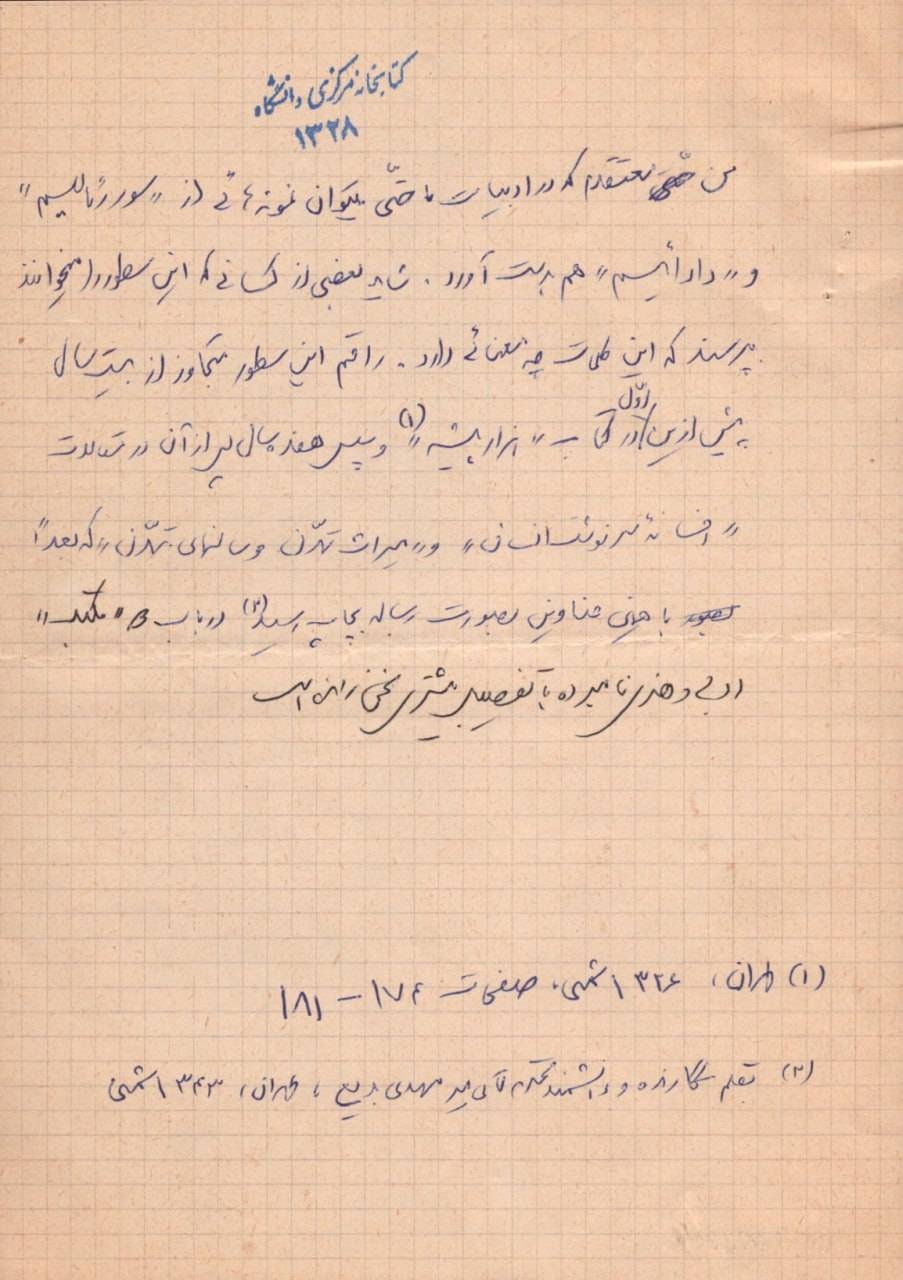 کتابخانه مرکزی دانشگاه
۱۳۲۸
من معتقدم که در ادبیات ما حتّی میتوان نمونه‌هائی از «سوررئالیسم»
و «دادائیسم» هم بدست آورد. شاید بعضی از کسانی که این سطور را میخوانند
بپرسند که این کلمات چه معنائی دارد. راقم این سطور متجاوز از بیست سال
پیش ازین اوّل در کتاب «هزار بیشه» (۱) و سپس هفده سال پس از آن در مقالات
«افسانهٔ سرنوشت انسان» و «میراث تمدّن و سالنهای تمدّن» که بعداً
با همین عناوین بصورت رساله بچاپ رسید (۲) در باب «مکتب»
ادبی و هنری نامبرده با تفصیل بیشتری سخن رانده است
(۱) طهران، ۱۳۲۶ شمسی، صفحات ۱۷۶ – ۱۸۱
(۲) بقلم نگارنده و دانشمند محترم آقای مهدی بدیع، طهران، ۱۳۴۳ شمسی